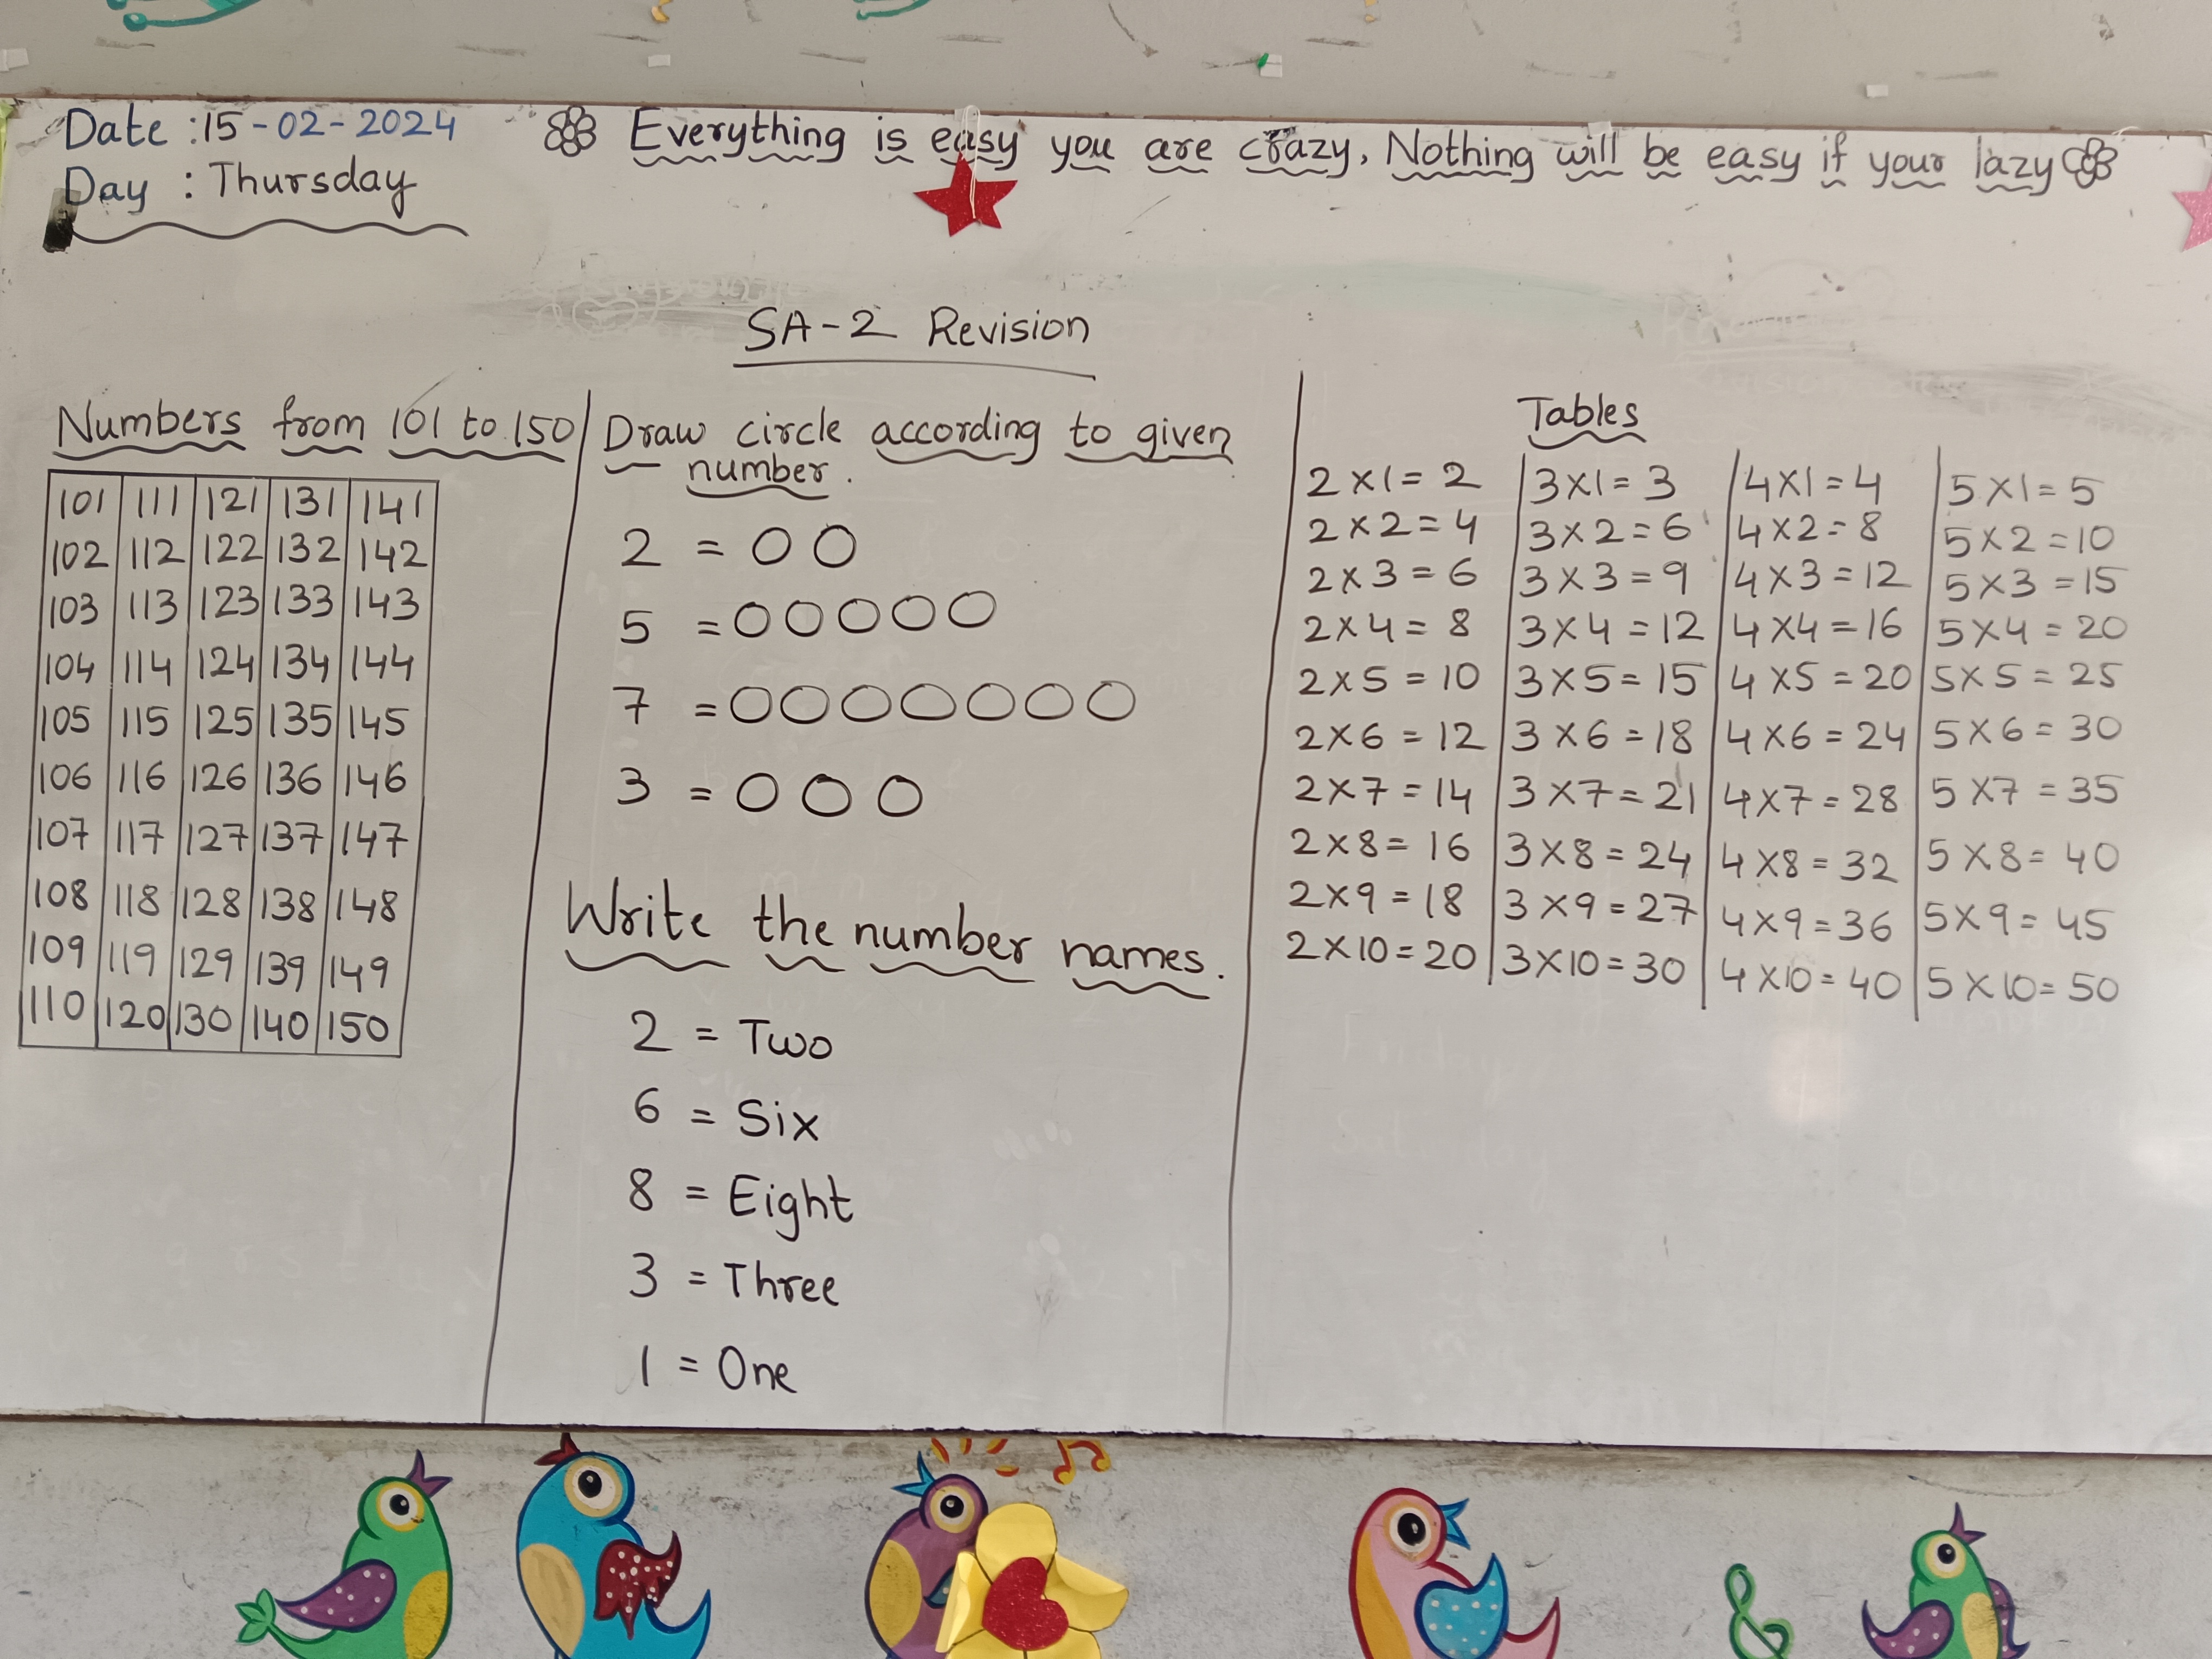 Date : 15-02-2024
Day : Thursday
Everything is easy you are crazy, Nothing will be easy if your lazy
SA-2 Revision
Numbers from 101 to 150
101 111 121 131 141
102 112 122 132 142
103 113 123 133 143
104 114 124 134 144
105 115 125 135 145
106 116 126 136 146
107 117 127 137 147
108 118 128 138 148
109 119 129 139 149
110 120 130 140 150
Draw circle according to given
number.
2 = ○ ○
5 = ○ ○ ○ ○ ○
7 = ○ ○ ○ ○ ○ ○ ○
3 = ○ ○ ○
Write the number names.
2 = Two
6 = Six
8 = Eight
3 = Three
1 = One
Tables
2 × 1 = 2 3 × 1 = 3 4 × 1 = 4 5 × 1 = 5
2 × 2 = 4 3 × 2 = 6 4 × 2 = 8 5 × 2 = 10
2 × 3 = 6 3 × 3 = 9 4 × 3 = 12 5 × 3 = 15
2 × 4 = 8 3 × 4 = 12 4 × 4 = 16 5 × 4 = 20
2 × 5 = 10 3 × 5 = 15 4 × 5 = 20 5 × 5 = 25
2 × 6 = 12 3 × 6 = 18 4 × 6 = 24 5 × 6 = 30
2 × 7 = 14 3 × 7 = 21 4 × 7 = 28 5 × 7 = 35
2 × 8 = 16 3 × 8 = 24 4 × 8 = 32 5 × 8 = 40
2 × 9 = 18 3 × 9 = 27 4 × 9 = 36 5 × 9 = 45
2 × 10 = 20 3 × 10 = 30 4 × 10 = 40 5 × 10 = 50